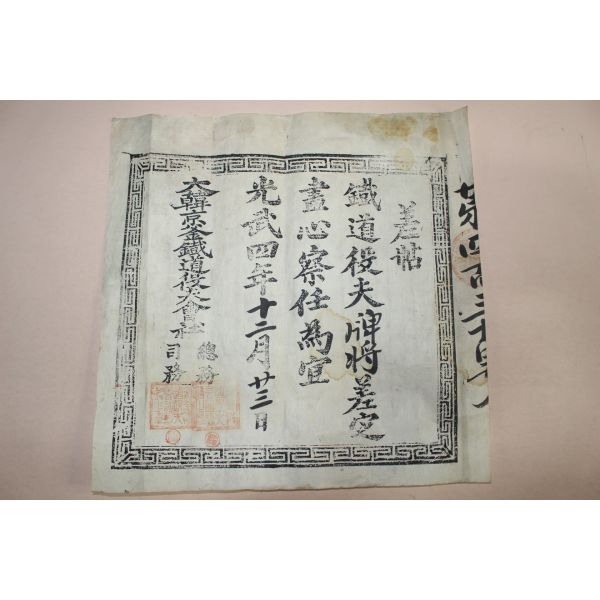 差帖
鐵道役夫牌將差定
盡心察任為宜
光武四年十二月廿三日
大韓京釜鐵道役夫會社
總務
司務